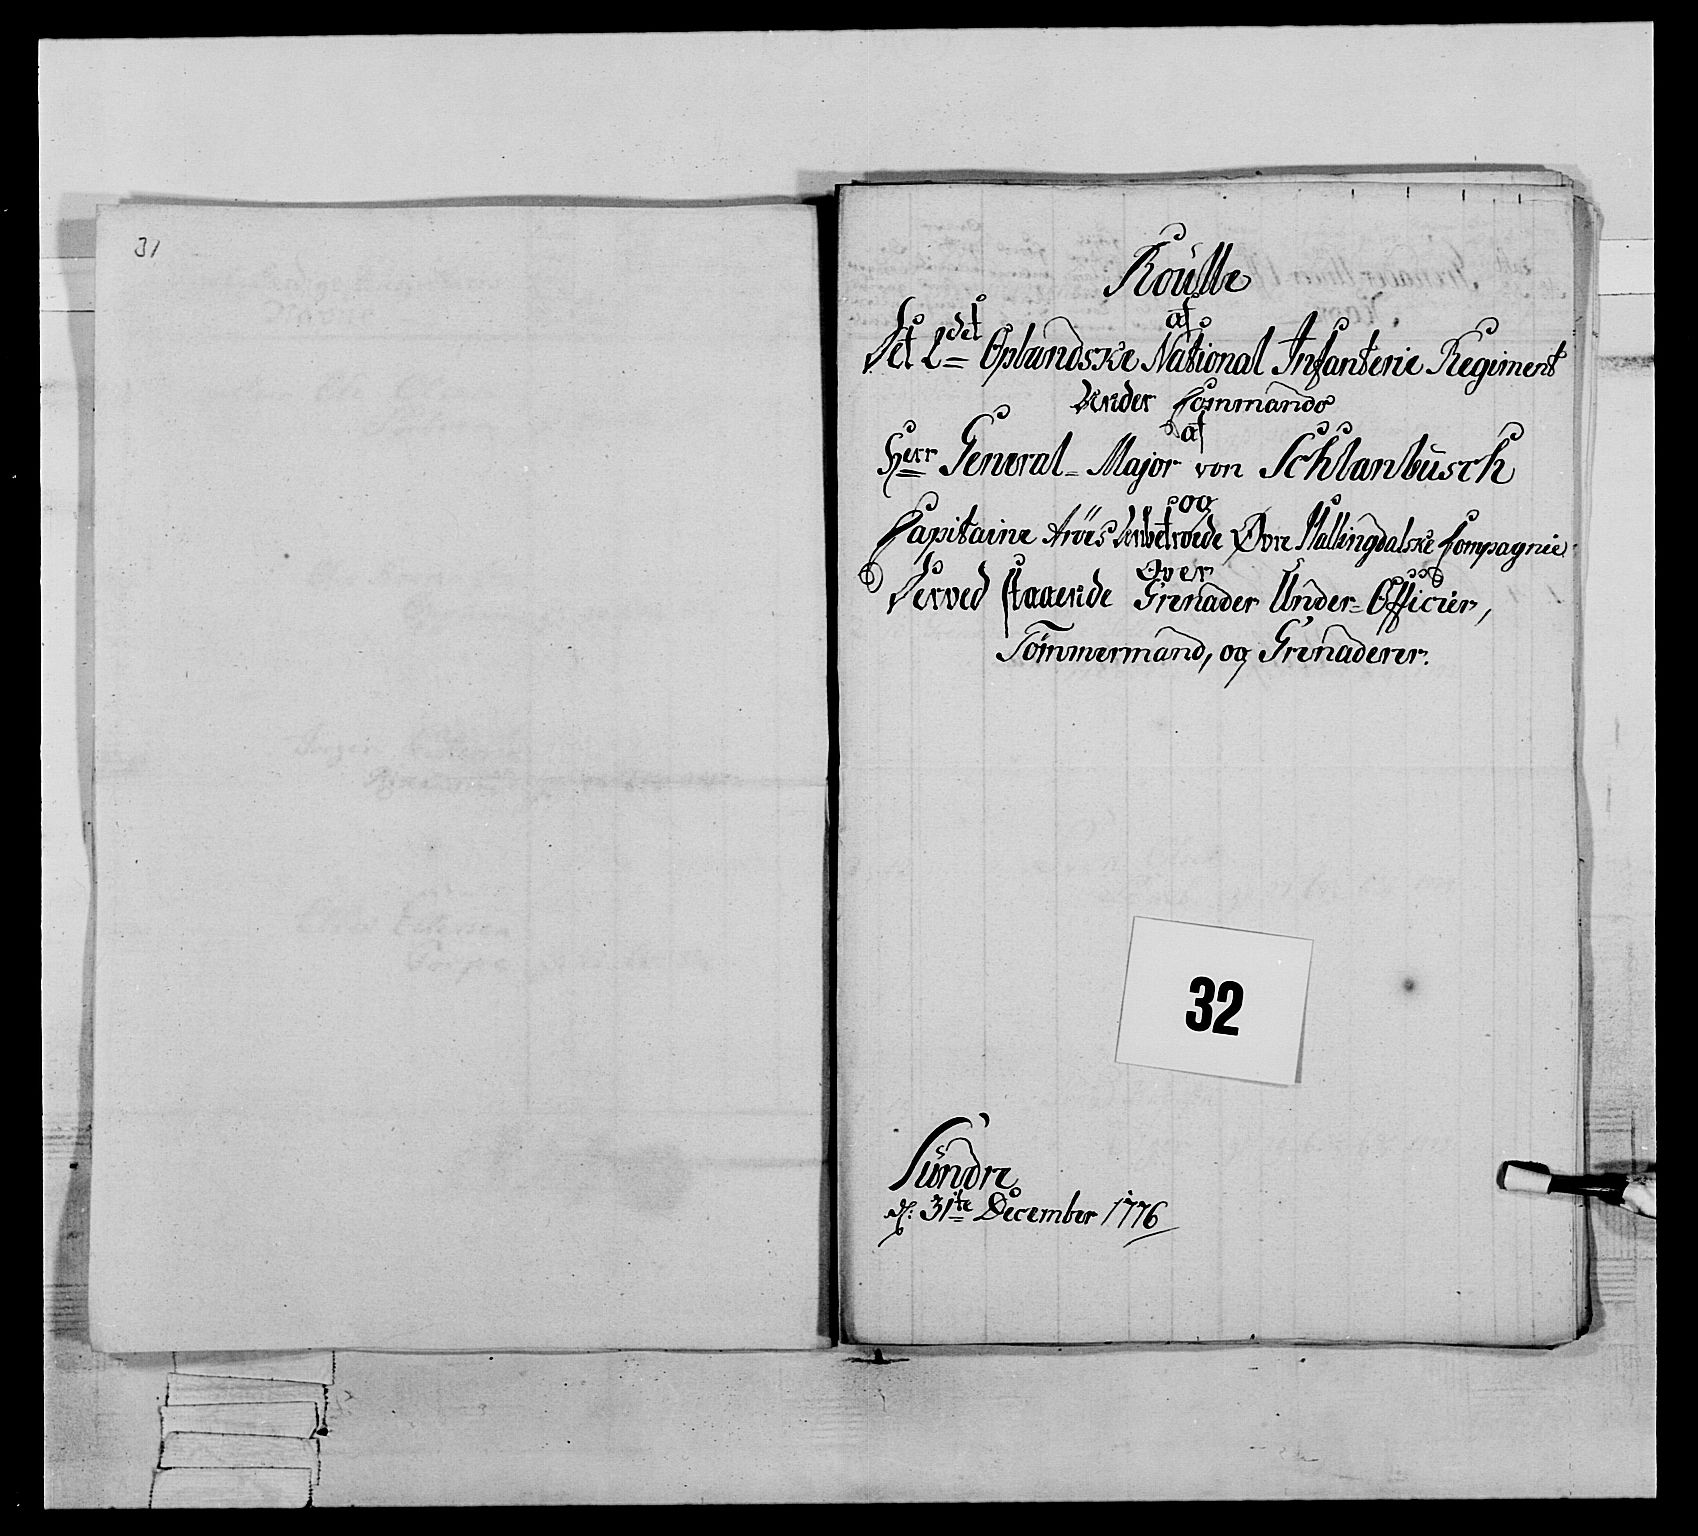 31
Roulle
af
Det 2det Oplandske National Infanterie Regiment
Under Commando
af
Herr General-Major von Schlanbusch
og
Capitaine Aröes Anbetroede Øvre Hallingdalske Compagnie
Over
Derved staaende Grenader Under-Officier,
Tömmermand, og Grenaderer.
32
Sundre
d: 31te December 1776